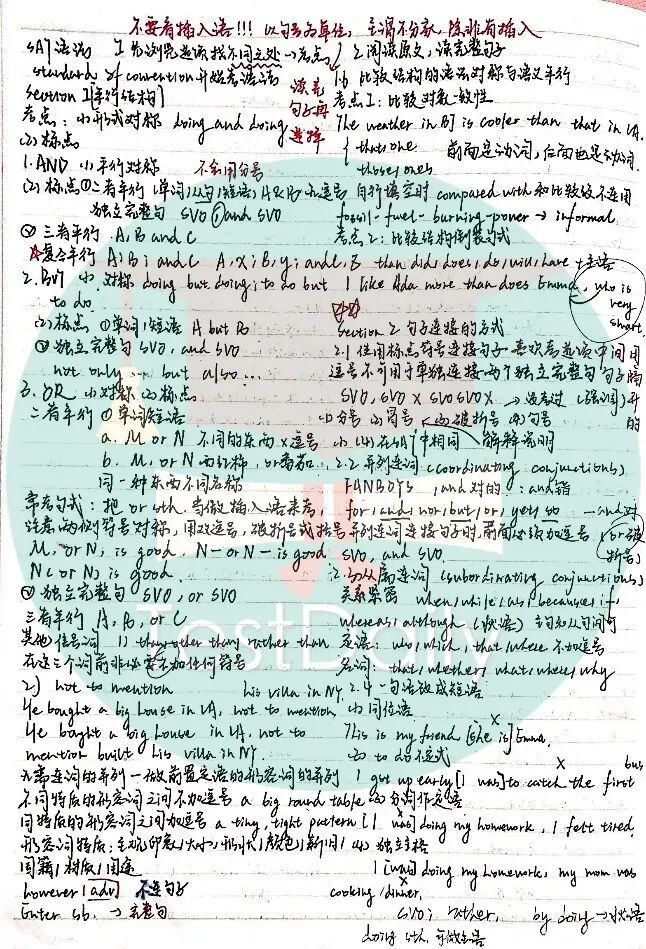 不要看插入语!!! 以句号为单位, 主谓不分家, 除非有插入
SAT语法 1 先浏览选项找不同之处→考点
standard of convention 开始考语法
读完句子再选择
section 1 [平行结构]
考点: (1) 形式对称 doing and doing
(2) 标点
1. AND (1) 平行对称 不会用分号
(2) 标点 ① 二者平行 (单词/从句/短语) A & B 不逗号
独立完整句 SVO, and SVO
② 三者平行 A, B and C
复合平行 A, B; and C A, X; B, Y; and C, Z
2. BUT (1) 对称 doing but doing; to do but to do
(2) 标点 ① 单词/短语 A but B
② 独立完整句 SVO, and SVO
not only … but also …
3. OR (1) 对称 (2) 标点
二者平行 ① 单词短语
a. M or N 不同的东西 × 逗号
b. M, or N 西红柿, or番茄.
同一种东西不同名称
常考句式: 把 or sth. 当做插入语来看,
注意两侧符号对称, 用双逗号, 破折号或括号
M, or N, is good. N—or N—is good
N (or N) is good.
② 独立完整句 SVO, or SVO
三者平行 A, B, or C
其他信号词 1) than, other than, rather than
在这三个词前非必要不加任何符号
2) not to mention his villa in NY.
He bought a big house in LA, not to mention
He bought a big house in LA, not to
mention built his villa in NY.
无需连词的并列—做前置定语的形容词的并列
不同特质的形容词之间不加逗号 a big round table
同特质的形容词之间加逗号 a tiny, tight pattern
形容词特质: 主观印象/大小/形状/颜色/新旧/
国籍/材质/用途
however (adv) 不连句子
Enter sb. → 完整句
2 阅读原文, 读完整句子
1.6 比较结构的语法对称与语义平行
考点1: 比较对象一致性
The weather in BJ is cooler than that in LA.
that one
those ones
前面是动词, 后面也是动词.
自行填空时 compared with 和比较级不连用
fossil-fuel-burning-power → informal
考点2: 比较结构倒装句式
than did, does, do, will, have + 主语
I like Ada more than does Emma, who is very smart.
Section 2 句子连接的方式
2.1 使用标点符号连接句子 喜欢考选项中间用
逗号不可用于单独连接两个独立完整句 句子隔开的
SVO, SVO × SVO SVO × → 没考过 (强调)
(1) 分号 (2) 冒号 (3) 破折号 (4) 句号
(1) (4) 在SAT中相同 解释说明
2.2 并列连词 (coordinating conjunctions)
FANBOYS , and 对的 : and 错
for, and, nor, but, or, yet, so —and 对
并列连词连接句子时, 前面必须加逗号 (or 破折号)
SVO, and SVO.
2.3 从属连词 (subordinating conjunctions)
关系紧密 when, while, as, because, if,
whereas, although (状语) 主句和从句间可
定语: who, which, that, where 不加逗号
名词: that, whether, what, where, why
2.4 一句话改成短语
(1) 同位语
This is my friend [she is] Emma.
(2) to do 不定式
I get up early [I was] to catch the first bus
(3) 分词作定语
[I was] doing my homework, I felt tired.
(4) 独立主格
I [was] doing my homework, my mom was
cooking dinner.
SVO; rather, by doing → 状语
doing sth. 可做主语